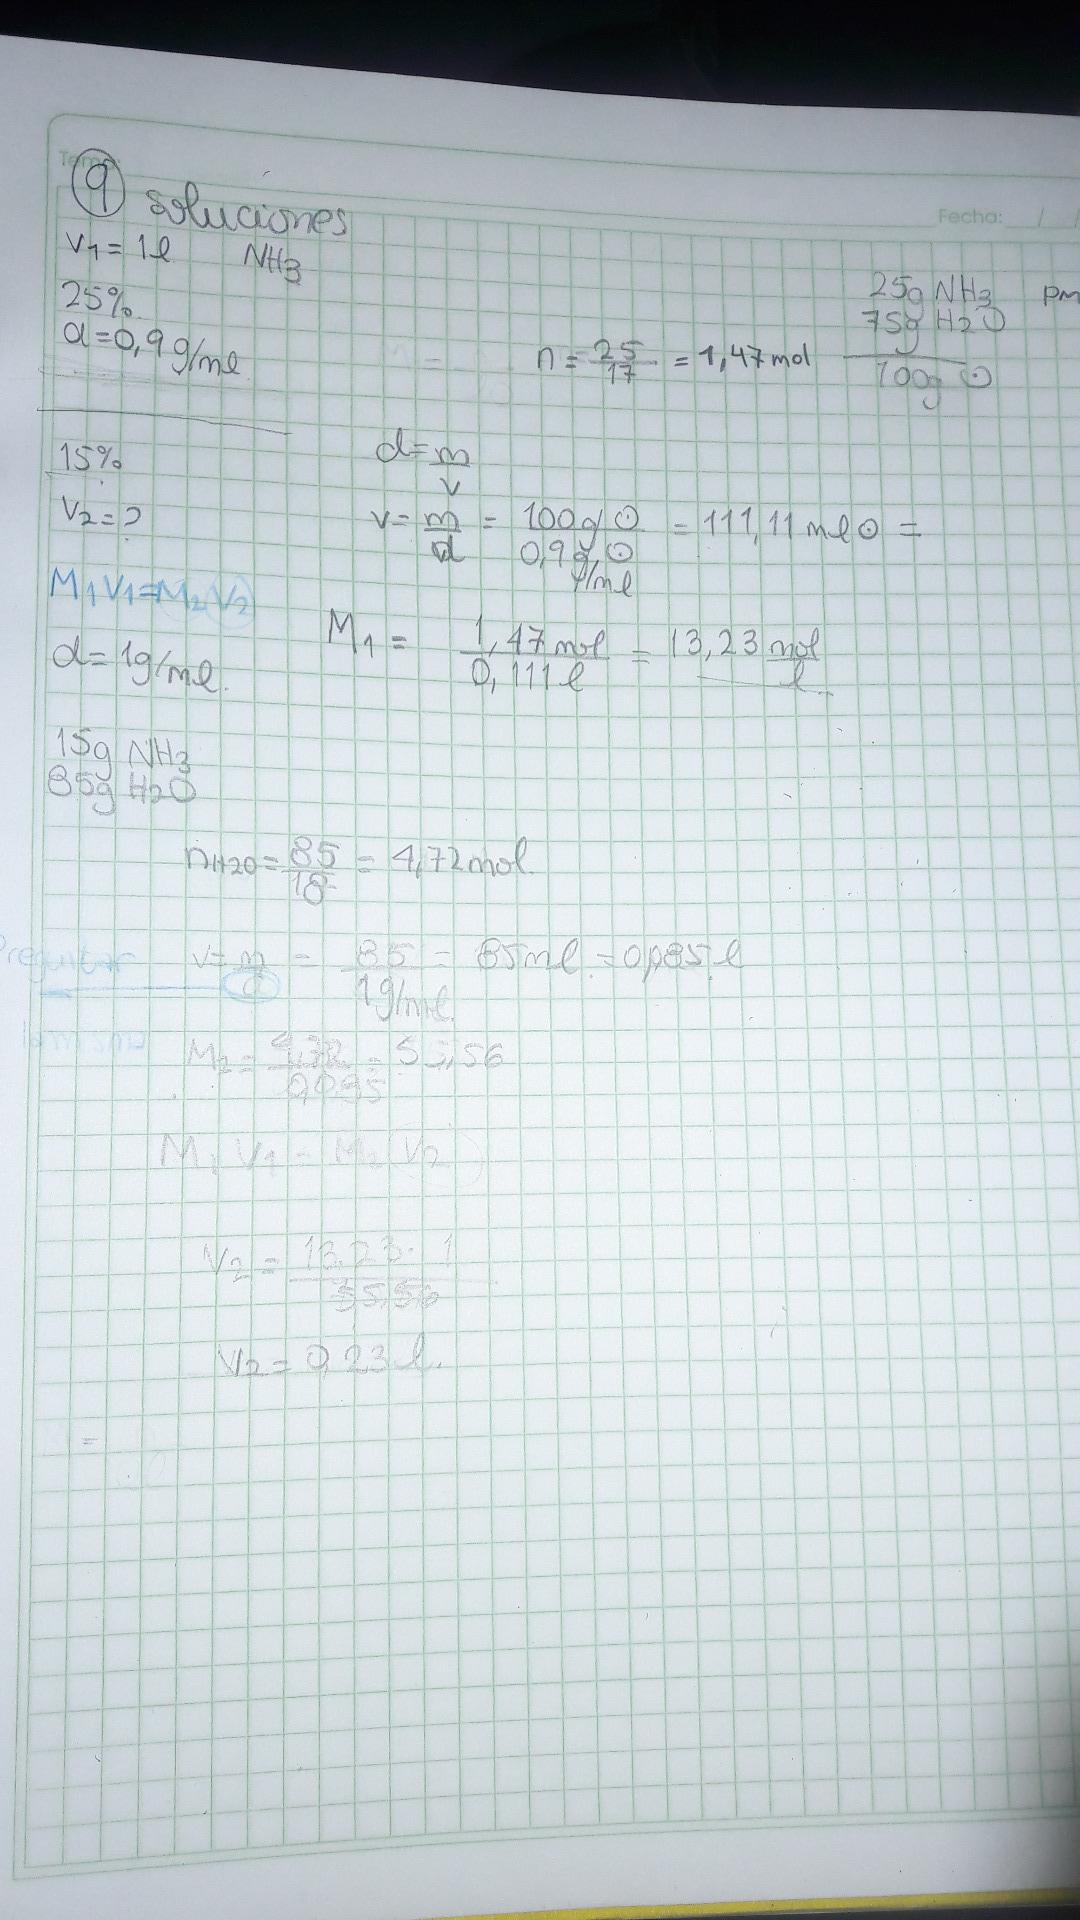 9 soluciones
Fecha: / /
V1 = 1l NH3
25%
d=0,9 g/ml
25g NH3 pm
75g H2O
100g ⊙
n = 25/17 = 1,47 mol
15%
V2 = ?
d = m/v
v = m/d = 100g ⊙ / 0,9 g ⊙/ml = 111,11 ml ⊙ =
M1V1=M2V2
d= 1g/ml.
M1 = 1,47 mol / 0,111 l = 13,23 mol/l
15g NH3
85g H2O
nH2O = 85/18 = 4,72 mol.
Preguntar
v = m/d = 85 / 1g/ml = 85 ml. = 0,085 l
M2 = 4,72 / 0,085 = 55,56
M1 V1 = M2 V2
V2 = 13,23 · 1 / 55,56
V2 = 0,23 l.
=